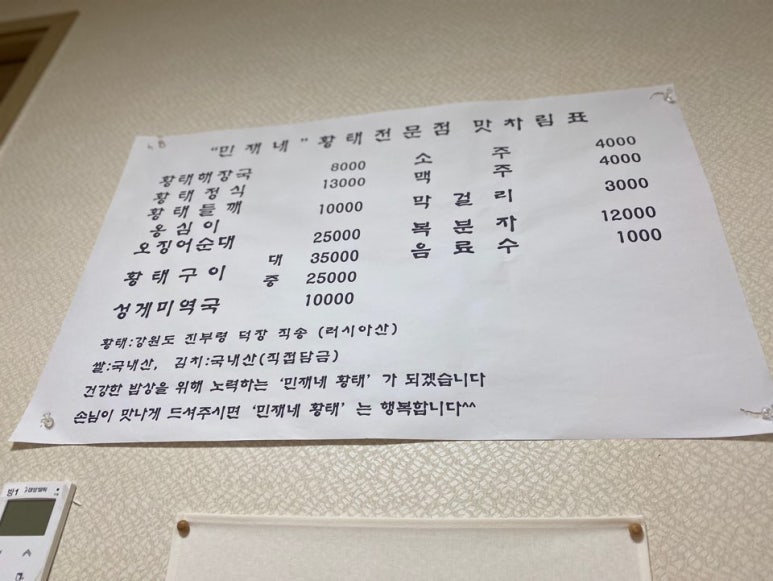 "민재네" 황태전문점 맛차림표
황태해장국 8000
황태정식 13000
황태들깨
옹심이 10000
오징어순대 25000
황태구이 대 35000
중 25000
성게미역국 10000
소주 4000
맥주 4000
막걸리 3000
복분자 12000
음료수 1000
황태:강원도 진부령 덕장 직송 (러시아산)
쌀:국내산, 김치:국내산(직접담금)
건강한 밥상을 위해 노력하는 '민재네 황태' 가 되겠습니다
손님이 맛나게 드셔주시면 '민재네 황태' 는 행복합니다^^
방1